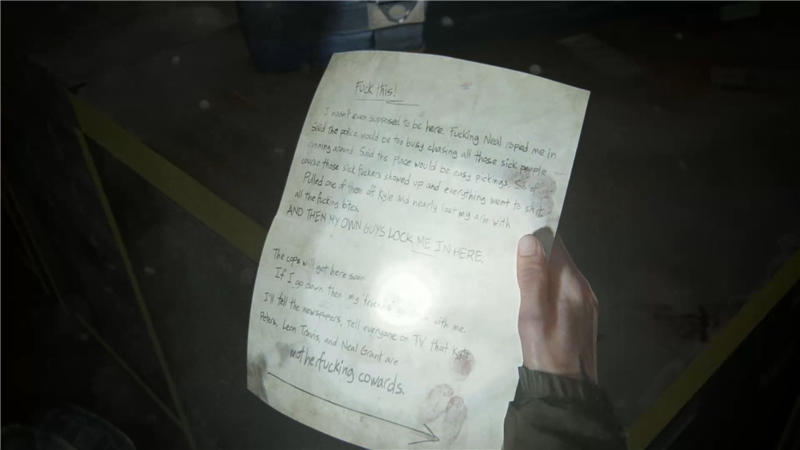 Fuck this!
I wasn't even supposed to be here. Fucking Neal roped me in
Said the police would be too busy chasing all those sick people
running around. Said the place would be easy pickings. So of
course those sick fuckers showed up and everything went to shit.
Pulled one of them off Kyle and nearly lost my arm with
all the fucking bites.
AND THEN MY OWN GUYS LOCK ME IN HERE.
The cops will get here soon
If I go down then my "friends" with me.
I'll tell the newspapers, tell everyone on TV that Kyle
Peters, Leon Travis, and Neal Grant are
motherfucking cowards.